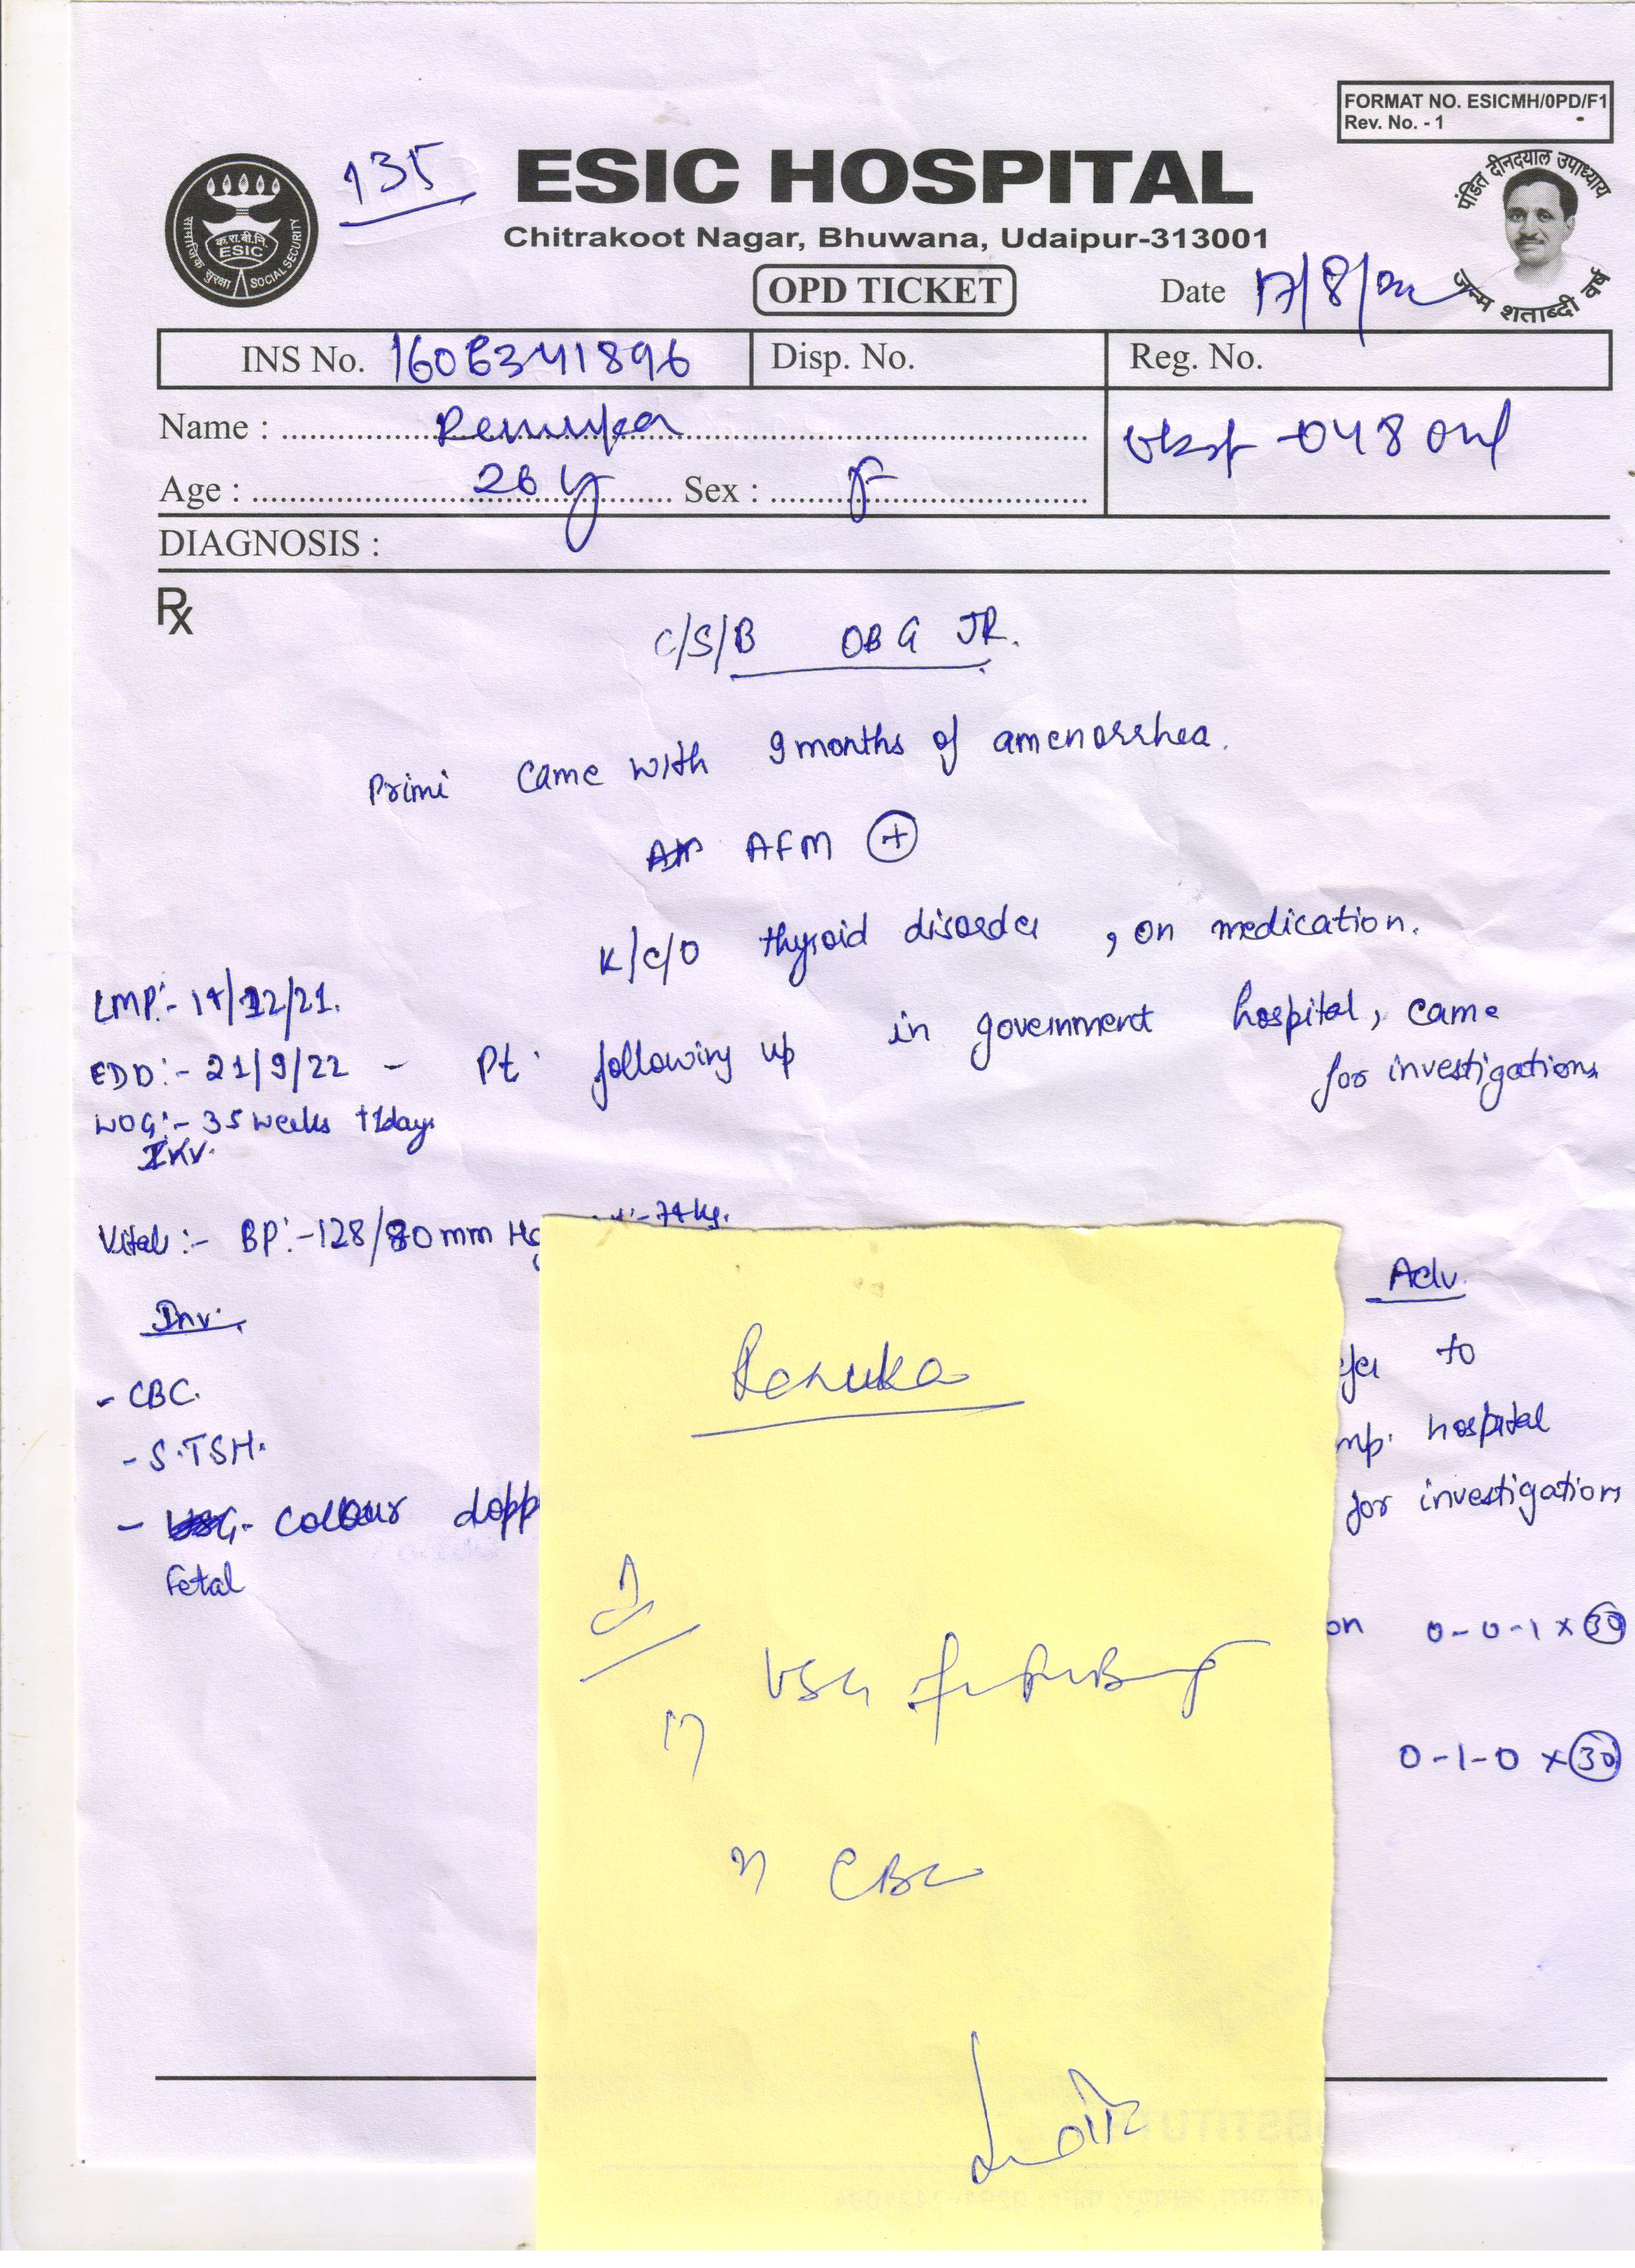 FORMAT NO. ESICMH/0PD/F1
Rev. No. - 1
135
ESIC HOSPITAL
Chitrakoot Nagar, Bhuwana, Udaipur-313001
OPD TICKET
Date 17/8/22
सामाजिक सुरक्षा
क.रा.बी.नि.
ESIC
SOCIAL SECURITY
पंडित दीनदयाल उपाध्याय
जन्म शताब्दी वर्ष
INS No. 1606341896 Disp. No. Reg. No.
Name : Renuka
Age : 26 y Sex : F
DIAGNOSIS :
Rx
C/S/B OBG JR.
Primi came with 9 months of amenorrhea.
AFM +
K/C/O thyroid disorder , on medication.
LMP:- 14/12/21.
EDD:- 21/9/22 - Pt. following up in government hospital, came
for investigations
WOG:- 35 weeks +1days
Vitals :- BP:- 128/80 mm Hg :-74kg.
Inv.
- CBC.
- S.TSH.
- Colour dopp
Fetal
Adv.
to
hospital
for investigations
0-0-1 x 30
0-1-0 x 30
Renuka
USG
CBC